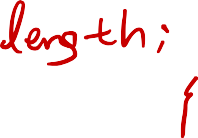 length;
}